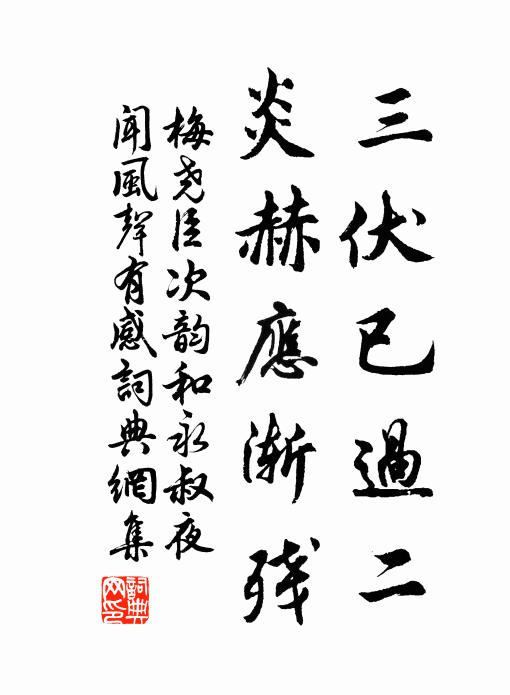 三伏已過二
炎赫應漸殘
梅堯臣次韵和永叔夜
聞風聲有感詞典網集
詞典網印